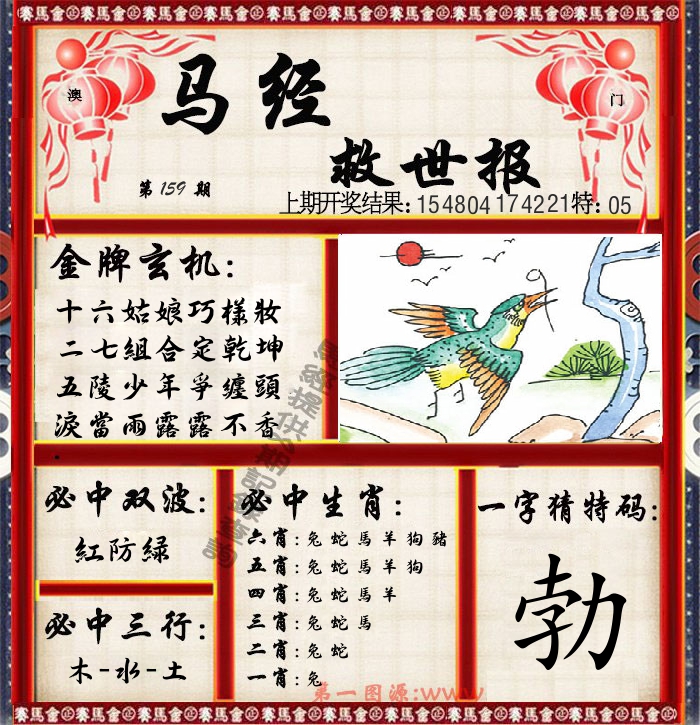 澳
门
马经
救世报
第159期
上期开奖结果:154804174221特:05
金牌玄机:
十六姑娘巧樣妝
二七組合定乾坤
五陵少年爭纏頭
淚當雨露露不香
必中双波:
紅防緑
必中三行:
木-水-土
必中生肖:
六肖:兔蛇馬羊狗豬
五肖:兔蛇馬羊狗
四肖:兔蛇馬羊
三肖:兔蛇馬
二肖:兔蛇
一肖:兔
一字猜特码:
勃
第一图源:www